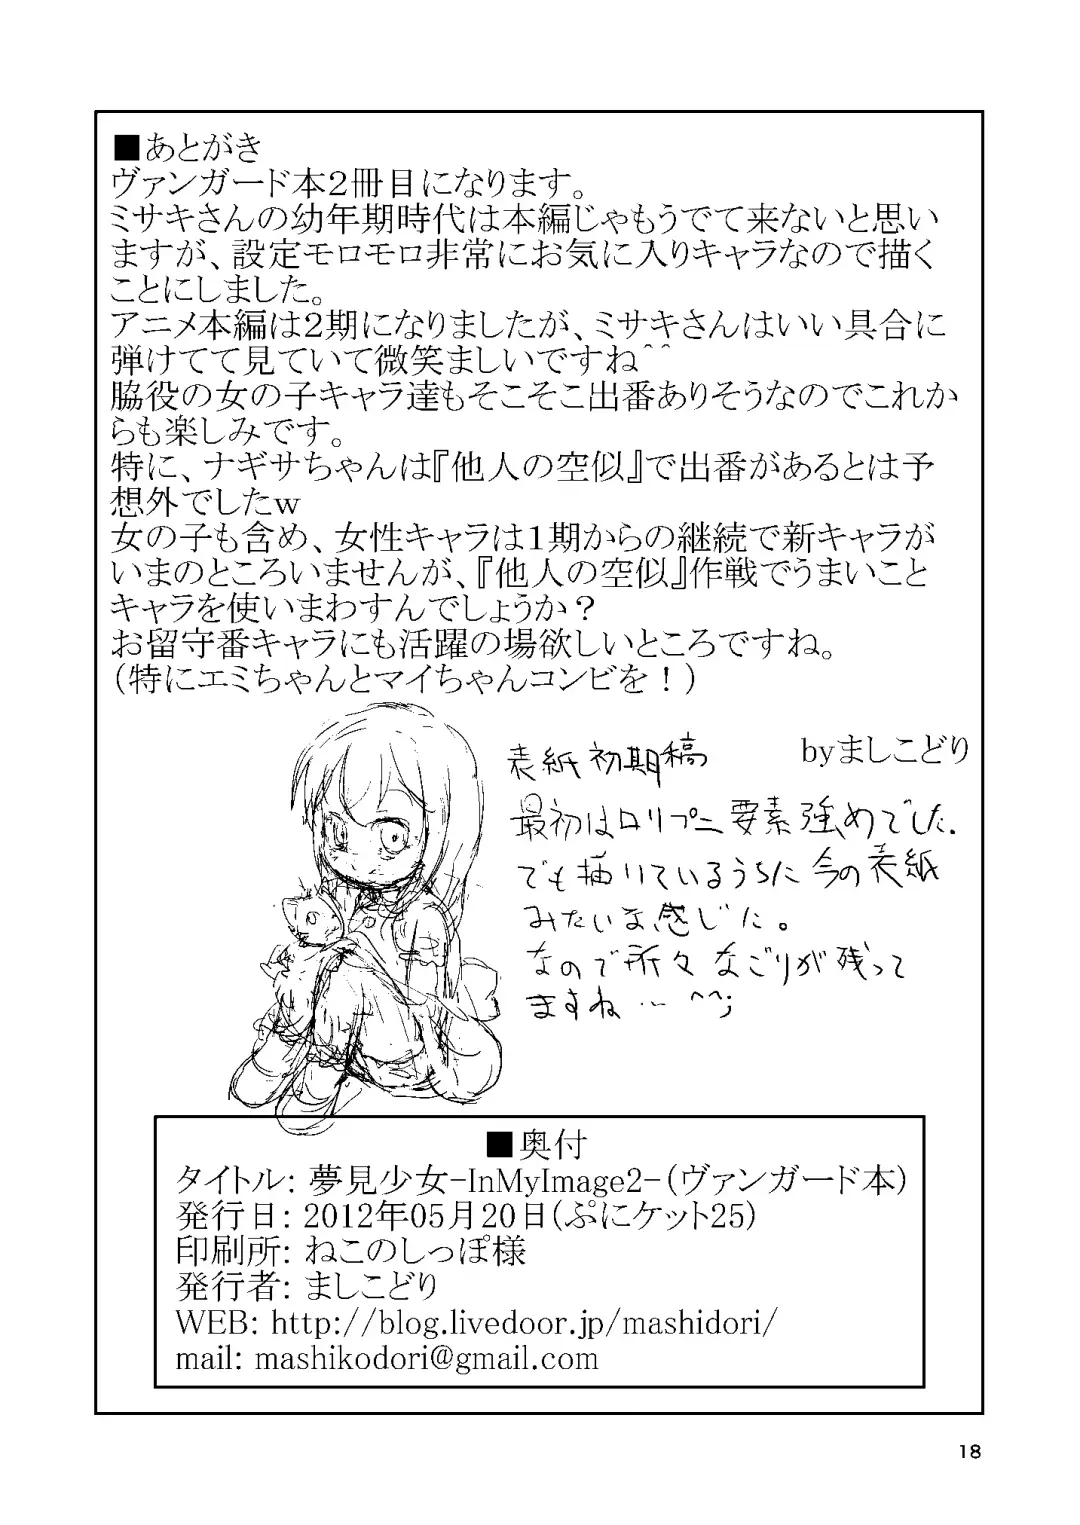 ■あとがき
ヴァンガード本２冊目になります。
ミサキさんの幼年期時代は本編じゃもうでて来ないと思い
ますが、設定モロモロ非常にお気に入りキャラなので描く
ことにしました。
アニメ本編は２期になりましたが、ミサキさんはいい具合に
弾けてて見ていて微笑ましいですね^^
脇役の女の子キャラ達もそこそこ出番ありそうなのでこれか
らも楽しみです。
特に、ナギサちゃんは『他人の空似』で出番があるとは予
想外でしたｗ
女の子も含め、女性キャラは１期からの継続で新キャラが
いまのところいませんが、『他人の空似』作戦でうまいこと
キャラを使いまわすんでしょうか？
お留守番キャラにも活躍の場欲しいところですね。
（特にエミちゃんとマイちゃんコンビを！）
byましこどり
表紙初期稿
最初はロリプニ要素強めでした.
でも描いているうちに今の表紙
みたいな感じに。
なので所々なごりが残って
ますね…^^;
■奥付
タイトル: 夢見少女-InMyImage2-（ヴァンガード本）
発行日: 2012年05月20日（ぷにケット25）
印刷所: ねこのしっぽ様
発行者: ましこどり
WEB: http://blog.livedoor.jp/mashidori/
mail: mashikodori@gmail.com
18